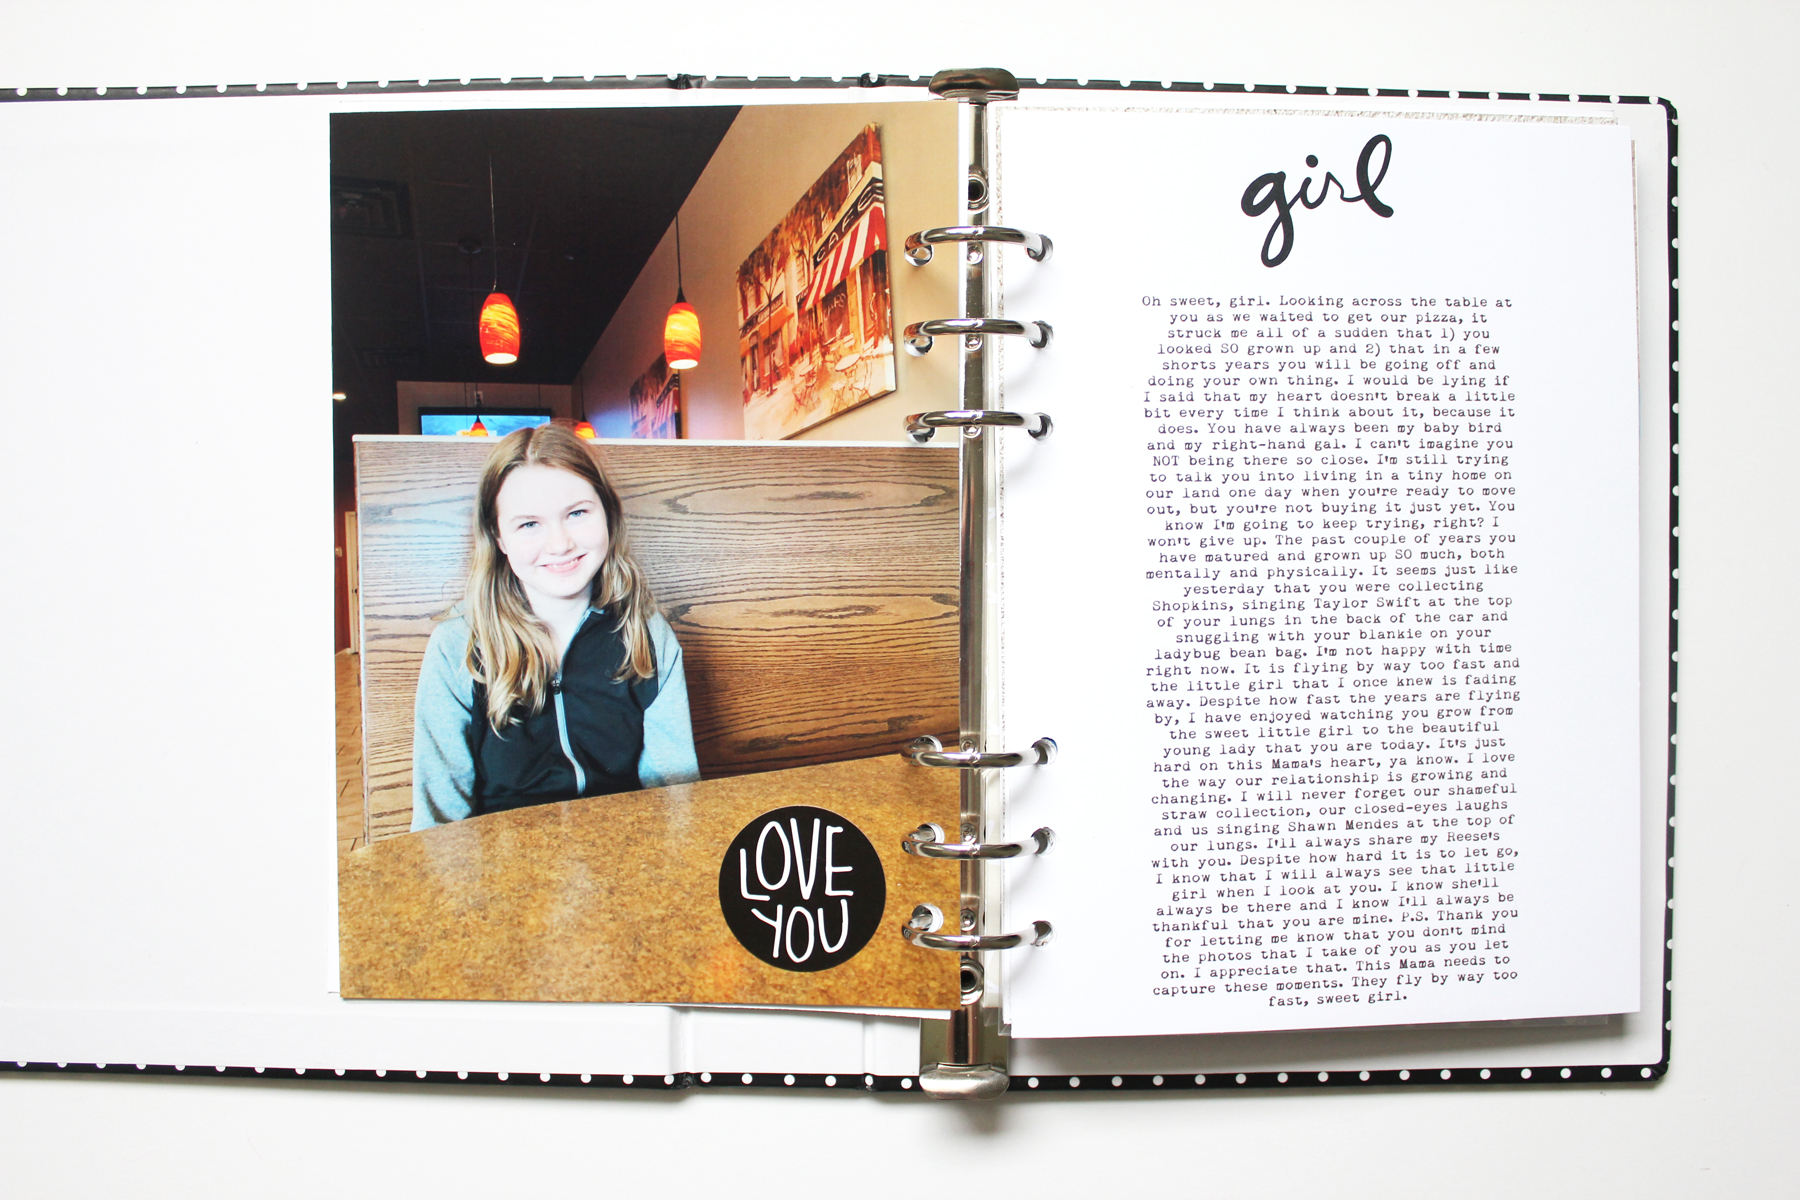 CAFE
LOVE
YOU
girl
Oh sweet, girl. Looking across the table at
you as we waited to get our pizza, it
struck me all of a sudden that 1) you
looked SO grown up and 2) that in a few
shorts years you will be going off and
doing your own thing. I would be lying if
I said that my heart doesn't break a little
bit every time I think about it, because it
does. You have always been my baby bird
and my right-hand gal. I can't imagine you
NOT being there so close. I'm still trying
to talk you into living in a tiny home on
our land one day when you're ready to move
out, but you're not buying it just yet. You
know I'm going to keep trying, right? I
won't give up. The past couple of years you
have matured and grown up SO much, both
mentally and physically. It seems just like
yesterday that you were collecting
Shopkins, singing Taylor Swift at the top
of your lungs in the back of the car and
snuggling with your blankie on your
ladybug bean bag. I'm not happy with time
right now. It is flying by way too fast and
the little girl that I once knew is fading
away. Despite how fast the years are flying
by, I have enjoyed watching you grow from
the sweet little girl to the beautiful
young lady that you are today. It's just
hard on this Mama's heart, ya know. I love
the way our relationship is growing and
changing. I will never forget our shameful
straw collection, our closed-eyes laughs
and us singing Shawn Mendes at the top of
our lungs. I'll always share my Reese's
with you. Despite how hard it is to let go,
I know that I will always see that little
girl when I look at you. I know she'll
always be there and I know I'll always be
thankful that you are mine. P.S. Thank you
for letting me know that you don't mind
the photos that I take of you as you let
on. I appreciate that. This Mama needs to
capture these moments. They fly by way too
fast, sweet girl.